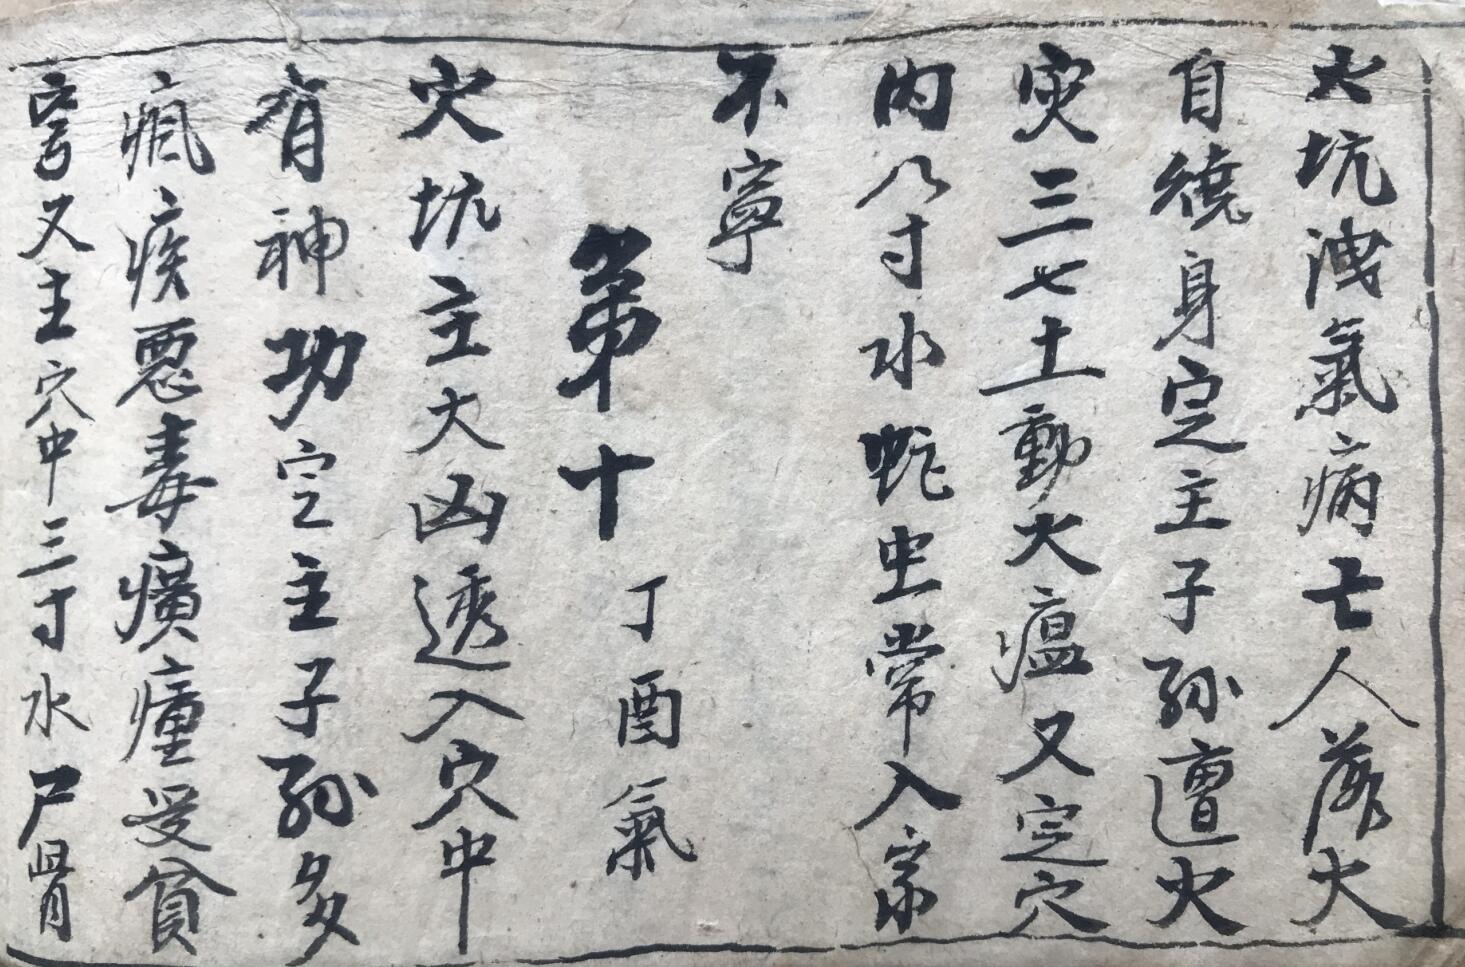 火坑洩氣病亡人落火
自繞身定主子孫遭火
災三七土動大瘟又定穴
内八寸水蛇虫常入家
不寧
第十 丁酉氣
火坑主大凶透入穴中
有神功定主子孫多
瘋疾惡毒癀瘴受貧
穷又主穴中三寸水尸骨